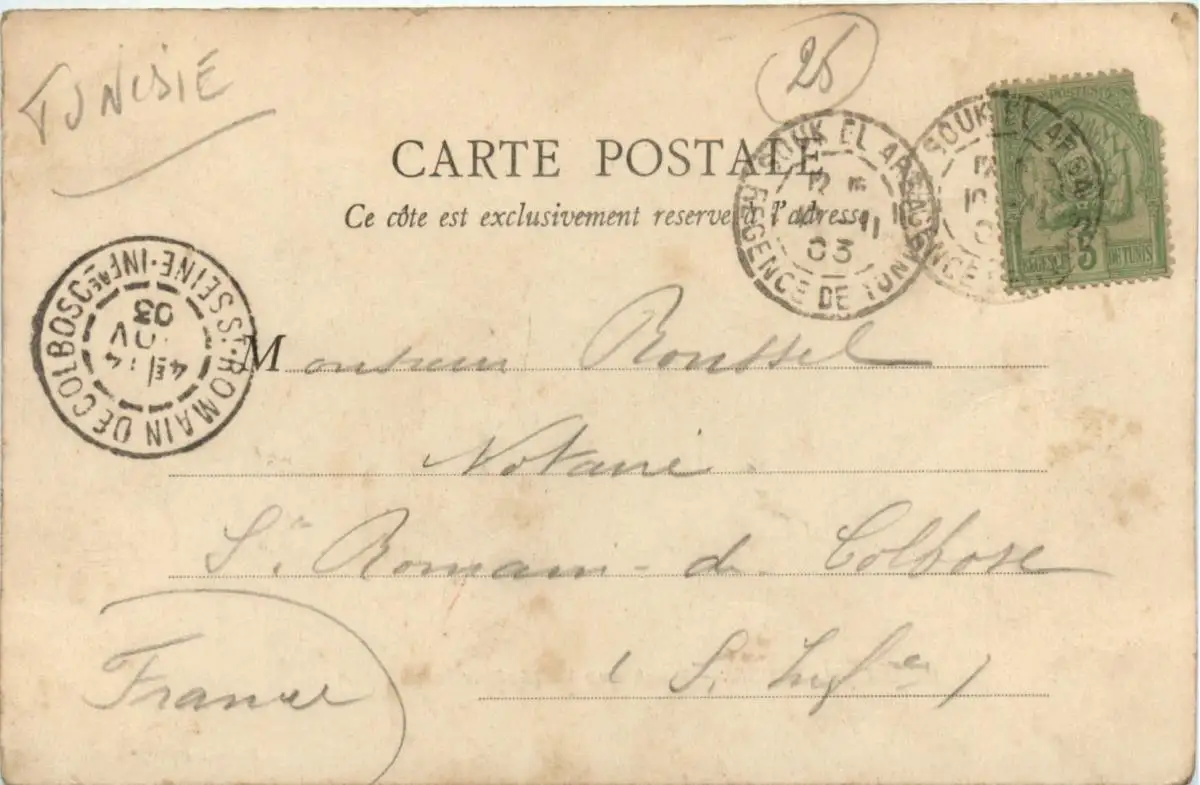 TUNISIE
25
CARTE POSTALE
Ce côte est exclusivement reservé à l'adresse
POSTES
REGENCE DE TUNIS
5
SOUK EL ARBA
REGENCE DE TUNIS
12
11
03
SOUK EL ARBA
REGENCE
ST-ROMAIN DE COLBOSC
SEINE-INFRE
4E 14
03
Monsieur Roussel
Notaire
St. Romain-de Colbosc
(S. Infre)
France